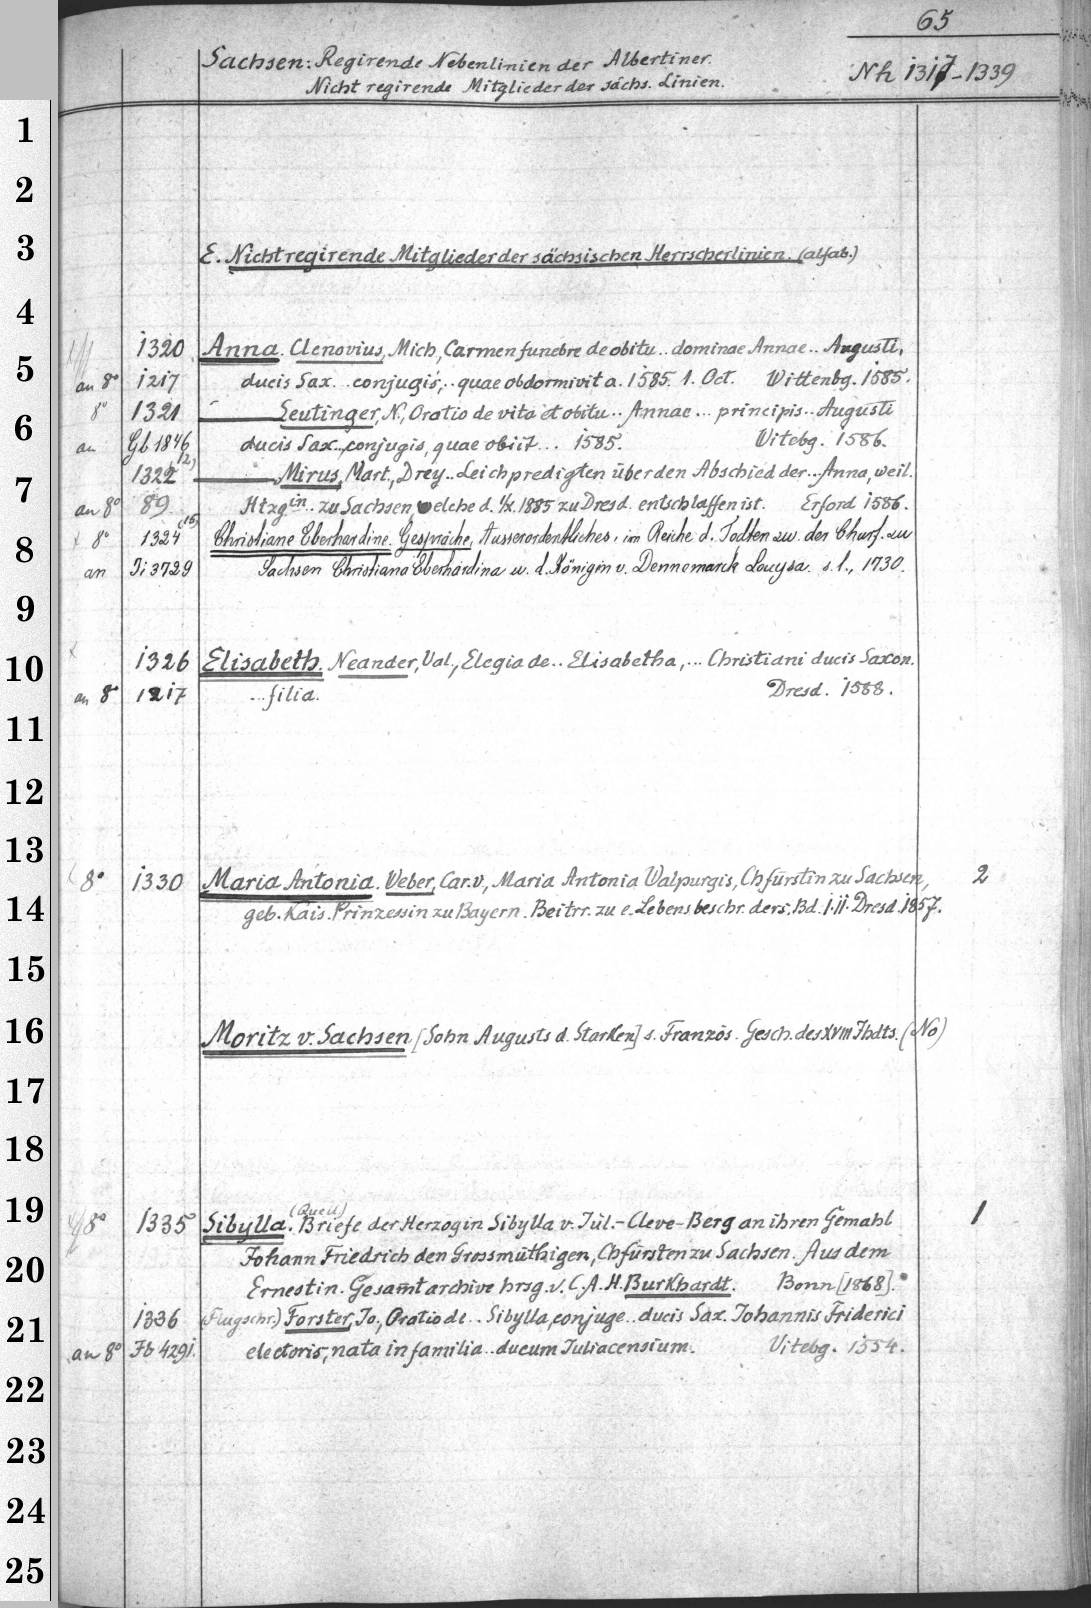 65
Sachsen: Regirende Nebenlinien der Albertiner.
Nicht regirende Mitglieder der sächs. Linien.
Nh 1317-1339
1
2
3
E. Nichtregirende Mitglieder der sächsischen Herrscherlinien. (alfab.)
4
1320 Anna. Clenovius, Mich, Carmen funebre de obitu.. dominae Annae.. Augusti,
5
an 8° 1217 ducis Sax... conjugis,.. quae obdormivit a. 1585. 1. Oct. Wittenbg. 1585.
8° 1321 — Leutinger, N., Oratio de vita et obitu.. Annae... principis.. Augusti
6
an Gb 1846 (12) ducis Sax... conjugis, quae obiit... 1585. Witebg. 1586.
1322 — Mirus, Mart., Drey.. Leichpredigten über den Abschied der.. Anna, weil.
7
an 8° 89 (15) Htzgin.. zu Sachsen, welche d. 1/X. 1885 zu Dresd. entschlaffen ist. Erford 1586.
8° 1324 Christiane Eberhardine. Gespräche, Ausserordentliches, im Reiche d. Todten zw. der Churf. zu
8
an Ji 3729 Sachsen Christiana Eberhardina u. d. Königin v. Dennemarck Louysa. s. l., 1730.
9
1326 Elisabeth. Neander, Val., Elegia de.. Elisabetha,... Christiani ducis Saxon.
10
an 8° 1217 ... filia. Dresd. 1588.
11
12
13
8° 1330 Maria Antonia. Weber, Car. v., Maria Antonia Walpurgis, Chfürstin zu Sachsen, 2
14
geb. Kais. Prinzessin zu Bayern. Beitrr. zu e. Lebensbeschr. ders. Bd. I.II. Dresd. 1857.
15
16
Moritz v. Sachsen [Sohn Augusts d. Starken] s. Französ. Gesch. des XVIII Jhdts. (No)
17
18
19
(Quell)
8° 1335 Sibylla. Briefe der Herzogin Sibylla v. Jül.-Cleve-Berg an ihren Gemahl 1
Johann Friedrich den Grossmüthigen, Chfürsten zu Sachsen. Aus dem
20
Ernestin. Gesamtarchive hrsg. v. C. A. H. Burkhardt. Bonn [1868].
1336 (Flugschr.) Forster, Jo., Oratio de.. Sibylla, conjuge.. ducis Sax. Johannis Friderici
21
an 8° Fb 4291. electoris, nata in familia.. ducum Juliacensium. Vitebg. 1554.
22
23
24
25